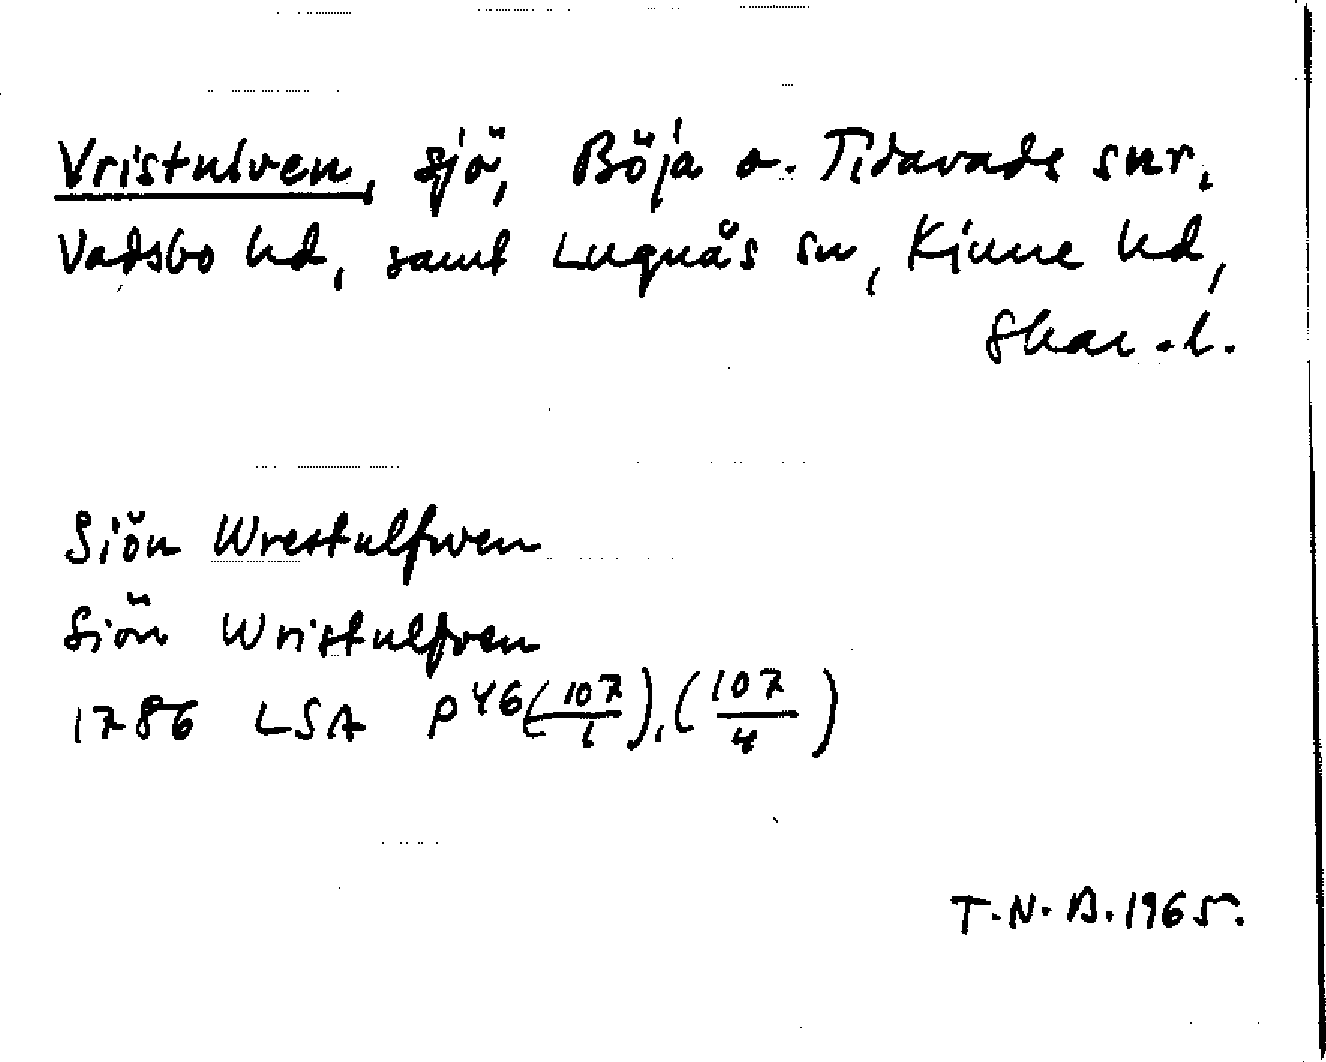 Vristulven, sjö, Böja o. Tidavads snr,
Vadsbo hd, samt Lugnås sn, Kinne hd,
Skar. l.
Siön Wrestulfwen
Siön Wristulfven
1786 LSA P 46 (107/1), (107/4)
T.N.B. 1965.